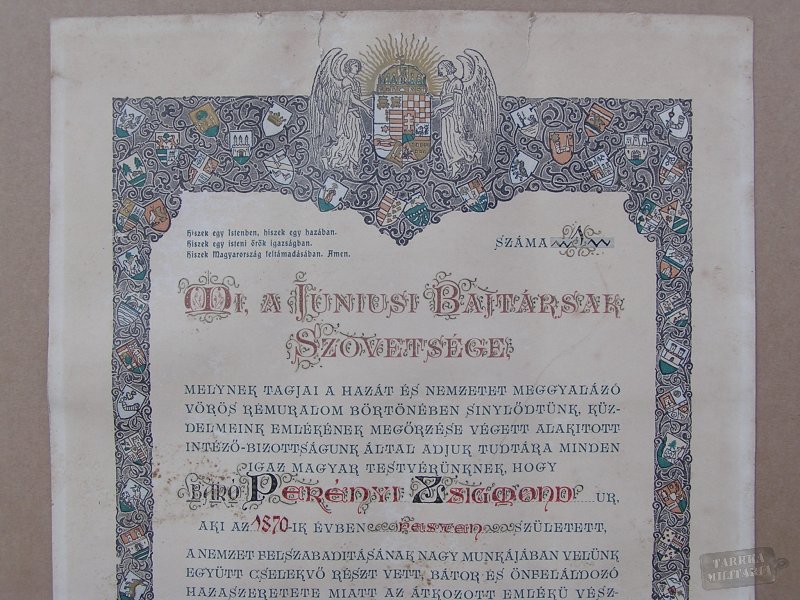 Hiszek egy Istenben, hiszek egy hazában.
Hiszek egy isteni örök igazságban.
Hiszek Magyarország feltámadásában. Amen.
SZÁMA 1
MI, A JÚNIUSI BAJTÁRSAK
SZÖVETSÉGE,
MELYNEK TAGJAI A HAZÁT ÉS NEMZETET MEGGYALÁZÓ
VÖRÖS RÉMURALOM BÖRTÖNÉBEN SINYLŐDTÜNK, KÜZ-
DELMEINK EMLÉKÉNEK MEGŐRZÉSE VÉGETT ALAKITOTT
INTÉZŐ-BIZOTTSÁGUNK ÁLTAL ADJUK TUDTÁRA MINDEN
IGAZ MAGYAR TESTVÉRÜNKNEK, HOGY
BÁRÓ PERÉNYI ZSIGMOND UR,
AKI AZ 1870-IK ÉVBEN PESTEN SZÜLETETT,
A NEMZET FELSZABADITÁSÁNAK NAGY MUNKÁJÁBAN VELÜNK
EGYÜTT CSELEKVŐ RÉSZT VETT, BÁTOR ÉS ÖNFELÁLDOZÓ
HAZASZERETETE MIATT AZ ÁTKOZOTT EMLÉKÜ VÉSZ-
TARRKA
MILITARIA